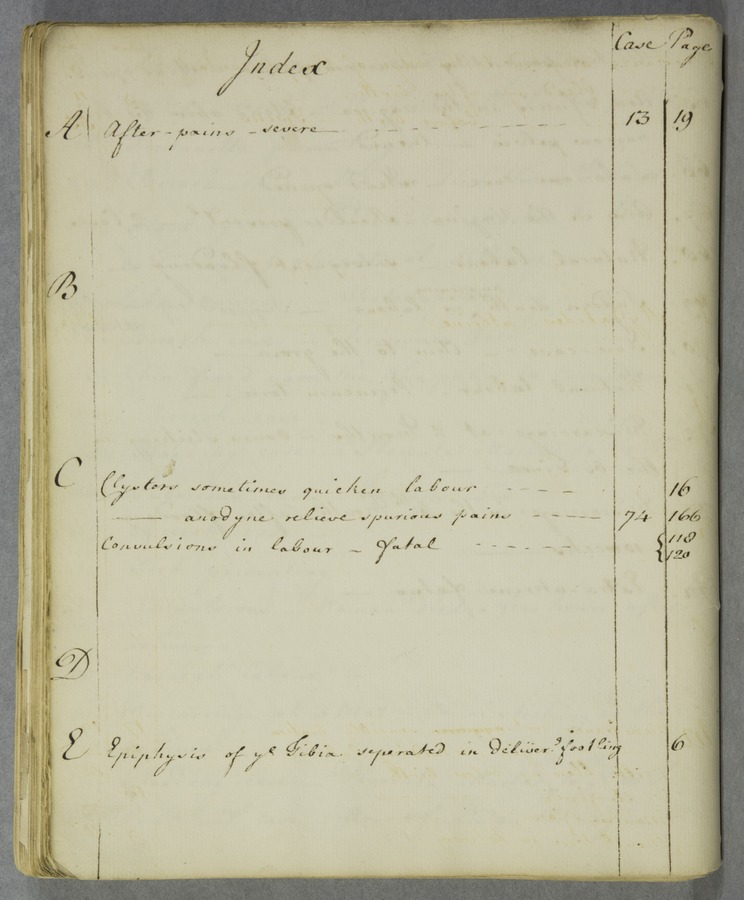 Index
Case Page
A After-pains - severe - - - - - - - - - 13 19
B
C Clysters sometimes quicken labour - - - - 16
—— anodyne relieve spurious pains - - - - — 74 166
Convulsions in labour - fatal - - - - - - { 118
120
D
E Epiphysis of ye Tibia seperated in deliver.g footling 6